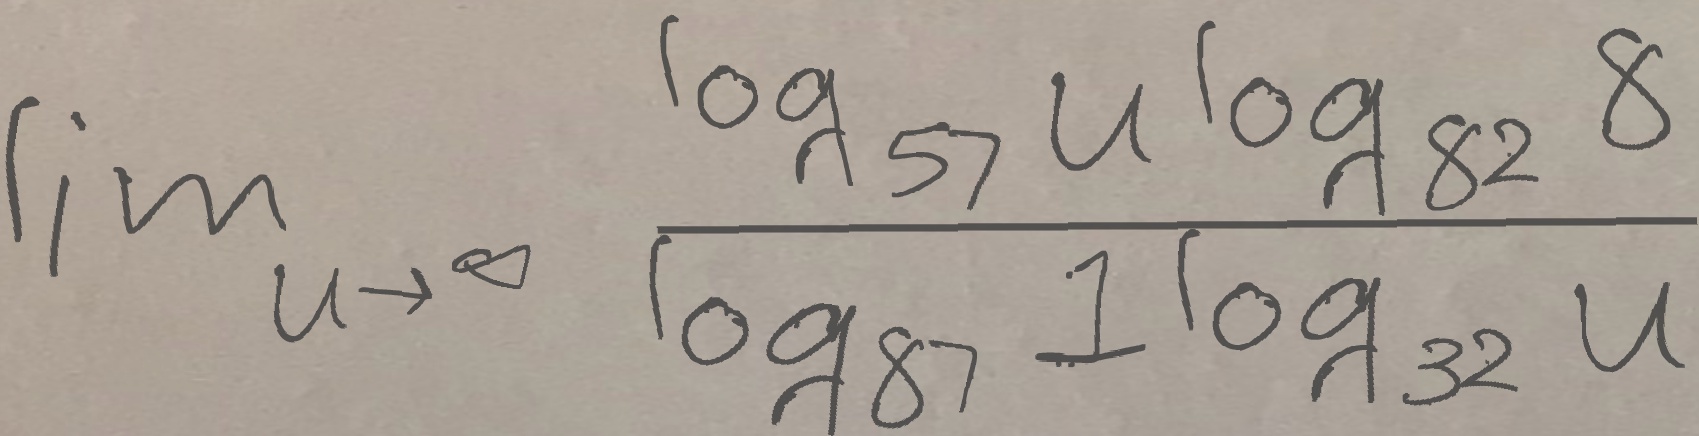 \lim_{u \to \infty} \frac{\log_{57} u \log_{82} 8}{\log_{87} 1 \log_{32} u}